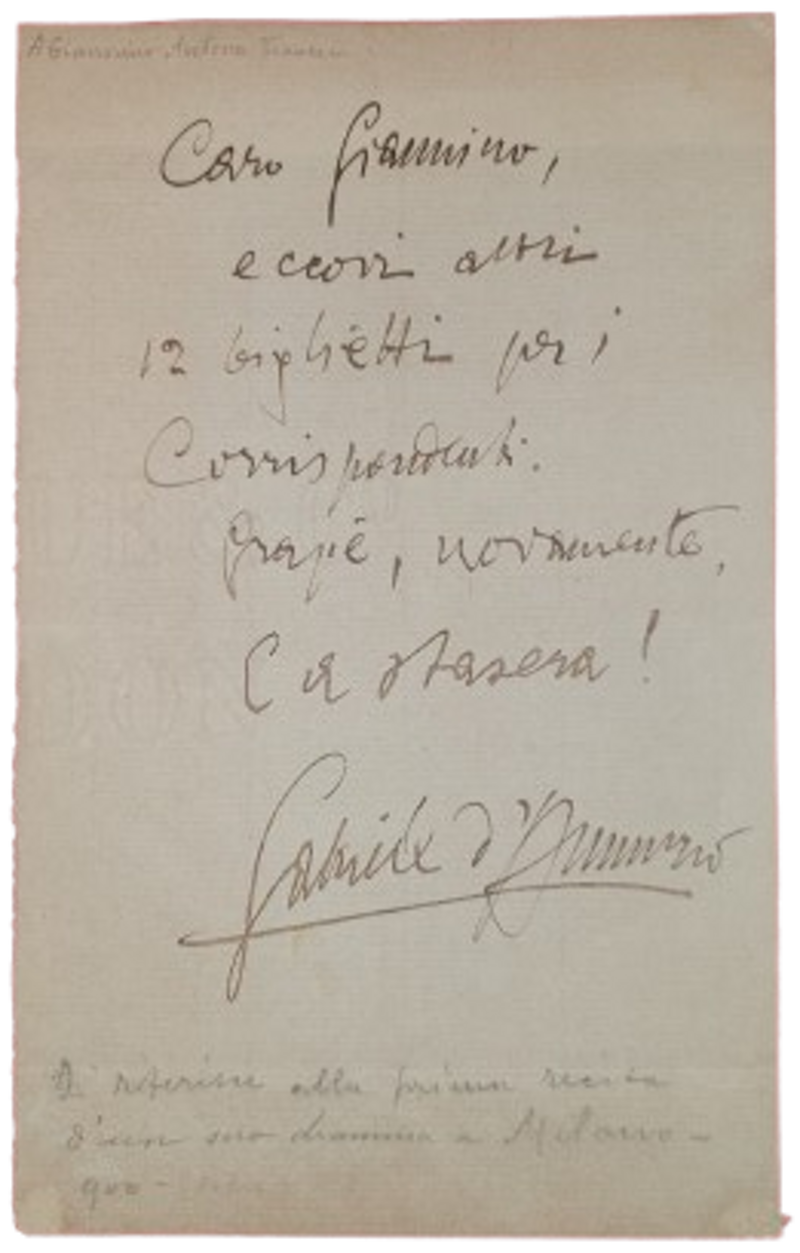 A Giannino Antona Traversi
Caro Giannino,
eccovi altri
12 biglietti per i
Corrispondenti.
Grazie, novamente,
E a stasera!
Gabriele d'Annunzio
Si riferisce alla prima recita
d'un suo dramma a Milano -
900 -